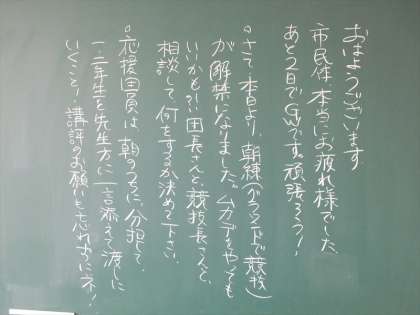 おはようございます
市民体 本当にお疲れ様でした
あと2日でGWです。頑張ろう!
。さて、本日より、朝練(グランド上で競技)
が解禁になりました。ムカデをやっても
いいかも?!団長さんと、競技長さんと、
相談して何をするか決めて下さい。
。応援団員は、朝のうちに、分担して、
一・二年生と先生方に一言添えて渡しに
いくこと!講評のお願いも忘れずにネ!